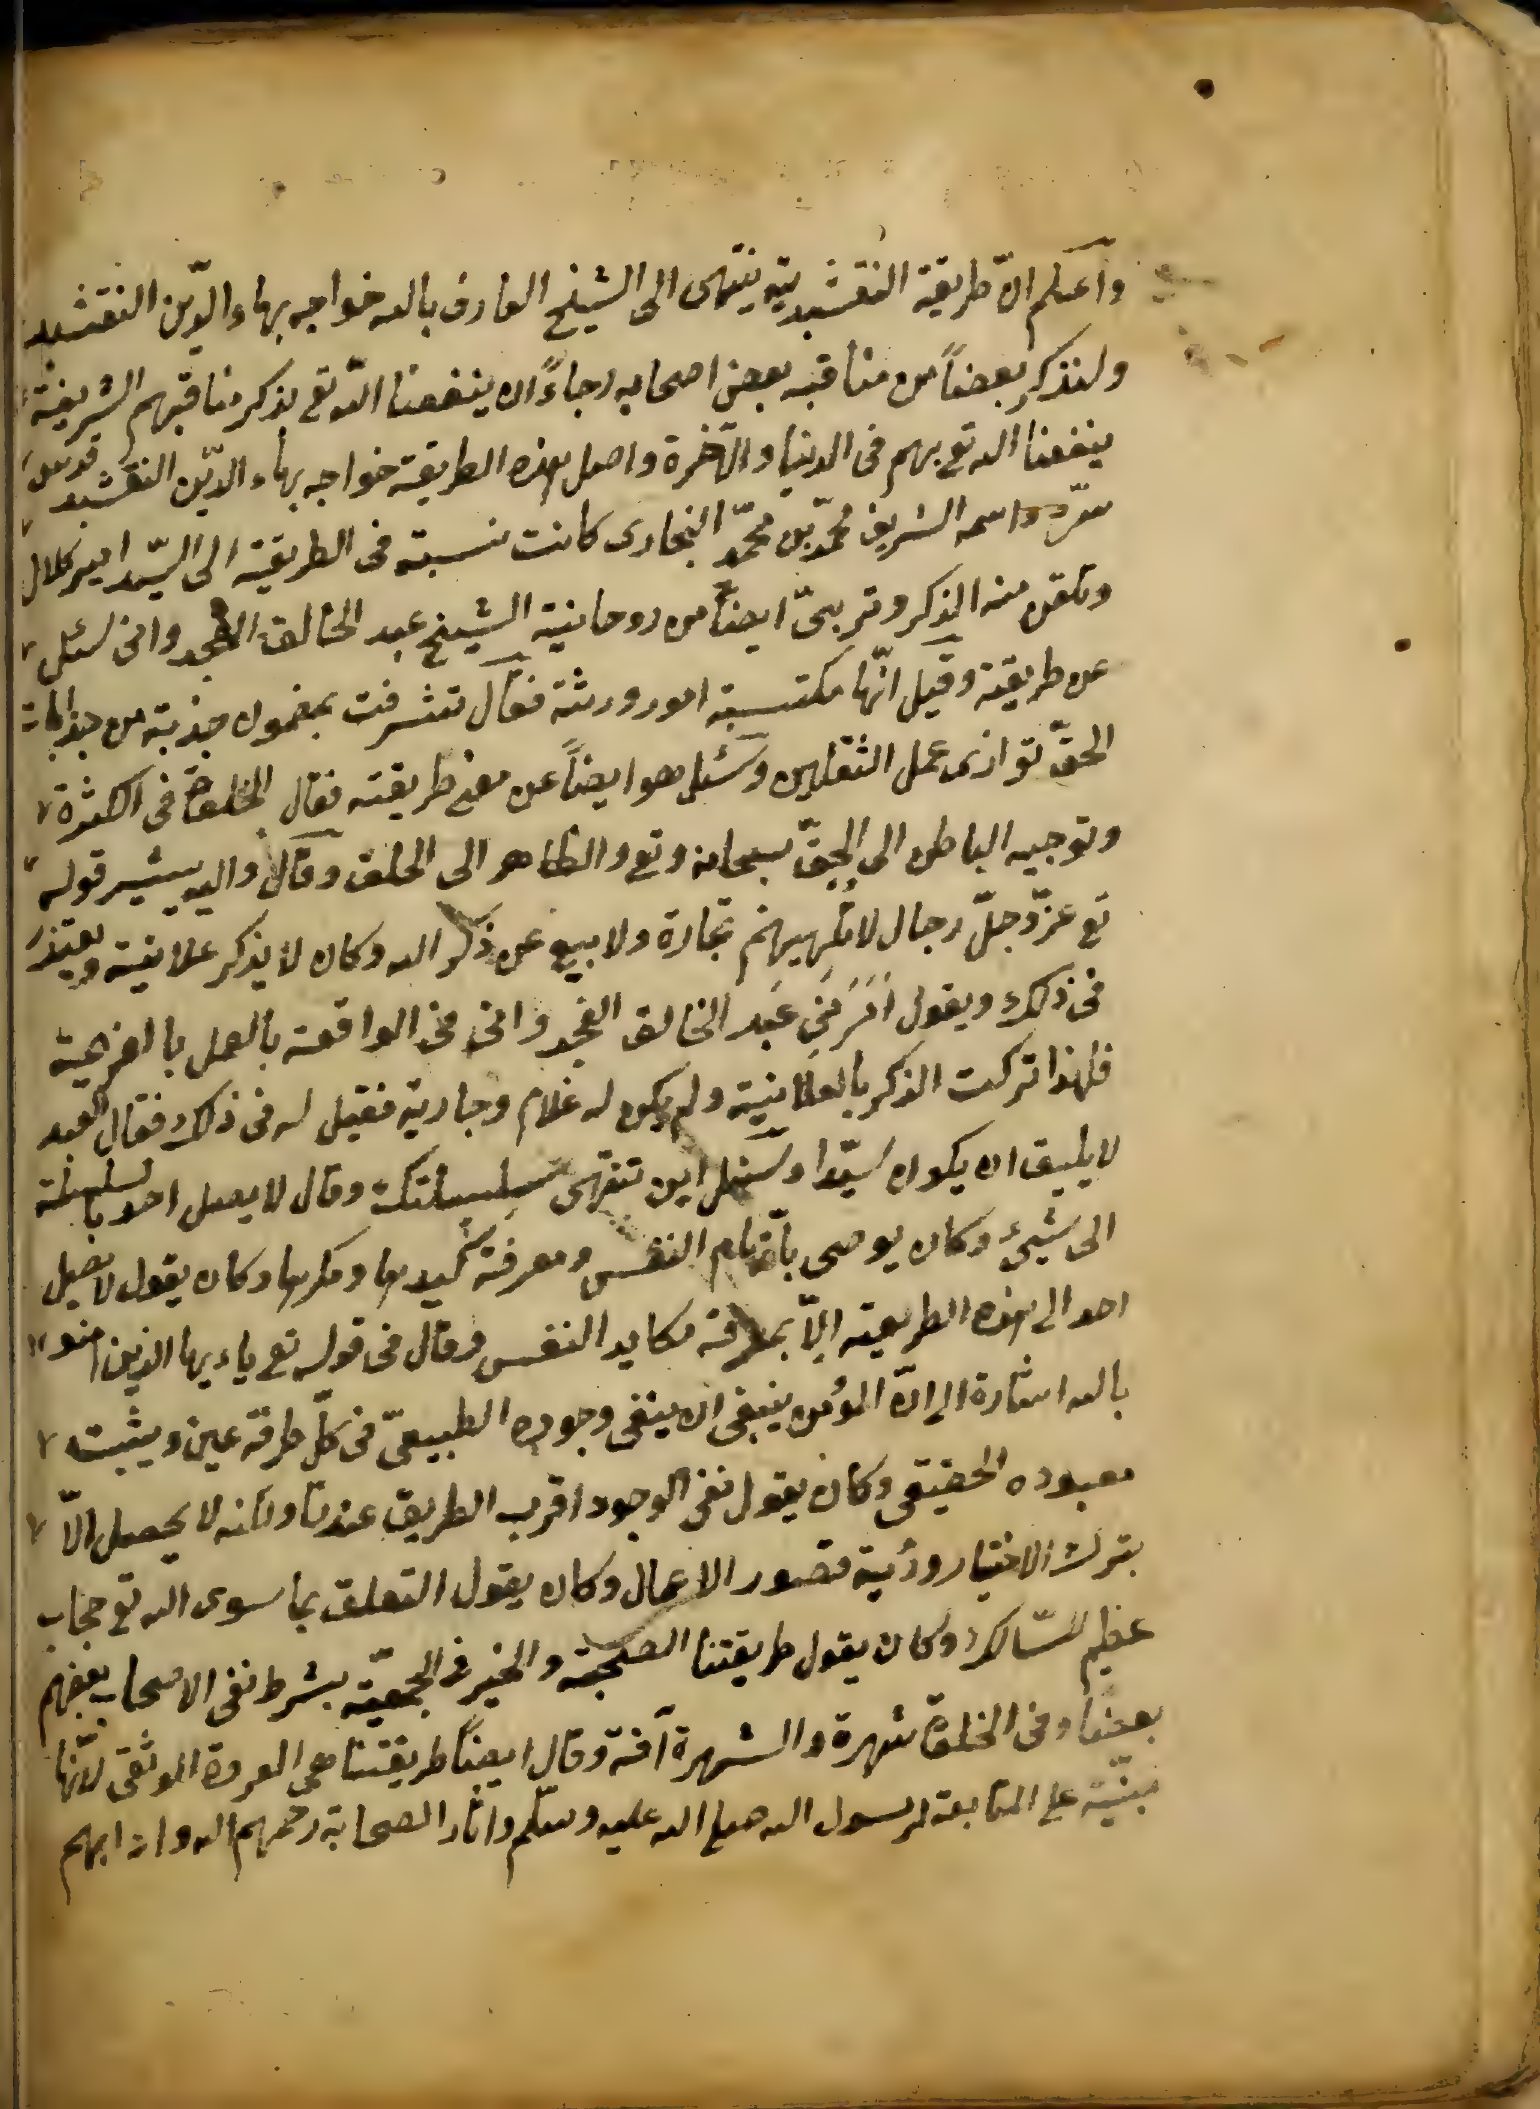 واعلم انّ طريقة النقشبدية ينتهى الى الشيخ العارف بالله خواجه بهاء الدّين النقشبد
ولنذكر بعضاً من مناقبه بعض اصحابه رجاءً ان ينفعنا الله تع بذكر مناقبهم الشريفة
ينفعنا الله تع بهم فى الدنيا والآخرة واصل هذه الطريقة خواجه بهاء الدّين النقشبد قدس
سرّه واسمه الشريف محمّد بن محمّد البخارى كانت نسبته فى الطريقة الى السّيد امير كلال
وتلقن منه الذكر وتربىّ ايضاً من روحانية الشيخ عبد الخالق الغجدوانى سئل
عن طريقة وقيل انّها مكتسبة امور ورثة فقال تشرفت بمضمون جذبة من جذبات
الحقّ توازى عمل الثقلين وسئل هو ايضاً عن معنى طريقته فقال الخلوة فى الكثرة
وتوجيه الباطن الى الحقّ سبحانه وتع والظاهر الى الخلق وقال واليه يشير قوله
تع عزّ وجلّ رجال لا تلهيهم تجارة ولا بيع عن ذكر الله وكان لا يذكر علانية ويعتذر
فى ذلك ويقول اَمَرَنى عَبد الخالق الغجدوانى فى الواقعة بالعمل بالعزيمة
فلهذا تركت الذكر بالعلانية ولم يكن له غلام وجارية فقيل له فى ذلك فقال العبد
لا يليق ان يكون سيّدا وسئل اين تنتهى سلسلتك وقال لا يصل احد بالسلسلة
الى شيئ وكان يوصى باتهام النفس ومعرفة كيدها ومكرها وكان يقول لا يصل
احد الى هذه الطريقة الاّ بمعرفة مكايد النفس وقال فى قوله تع ياءيها الذين امنوا
بالله اشارة الى انّ المؤمن ينبغى ان ينفى وجوده الطبيعىّ فى كلّ طرفة عين ويثبت
معبوده الحقيقى وكان يقول نفى الوجود اقرب الطريق عندنا ولكنه لا يحصل الاّ
بترك الاختيار ورؤية قصور الاعمال وكان يقول التعلق بما سوى الله تع حجاب
عظيم للسّالك وكان يقول طريقتنا الصحبة والخير فى الجمعيّة بشرط نفى الاصحاب بعضهم
بعضا وفى الخلوة شهرة والشهرة آفة وقال ايضاً طريقتنا هى العروة الوثقى لانّها
مبنيّة على المتابعة لرسول الله صلى الله عليه وسلّم واثار الصحابة رحمهم الله